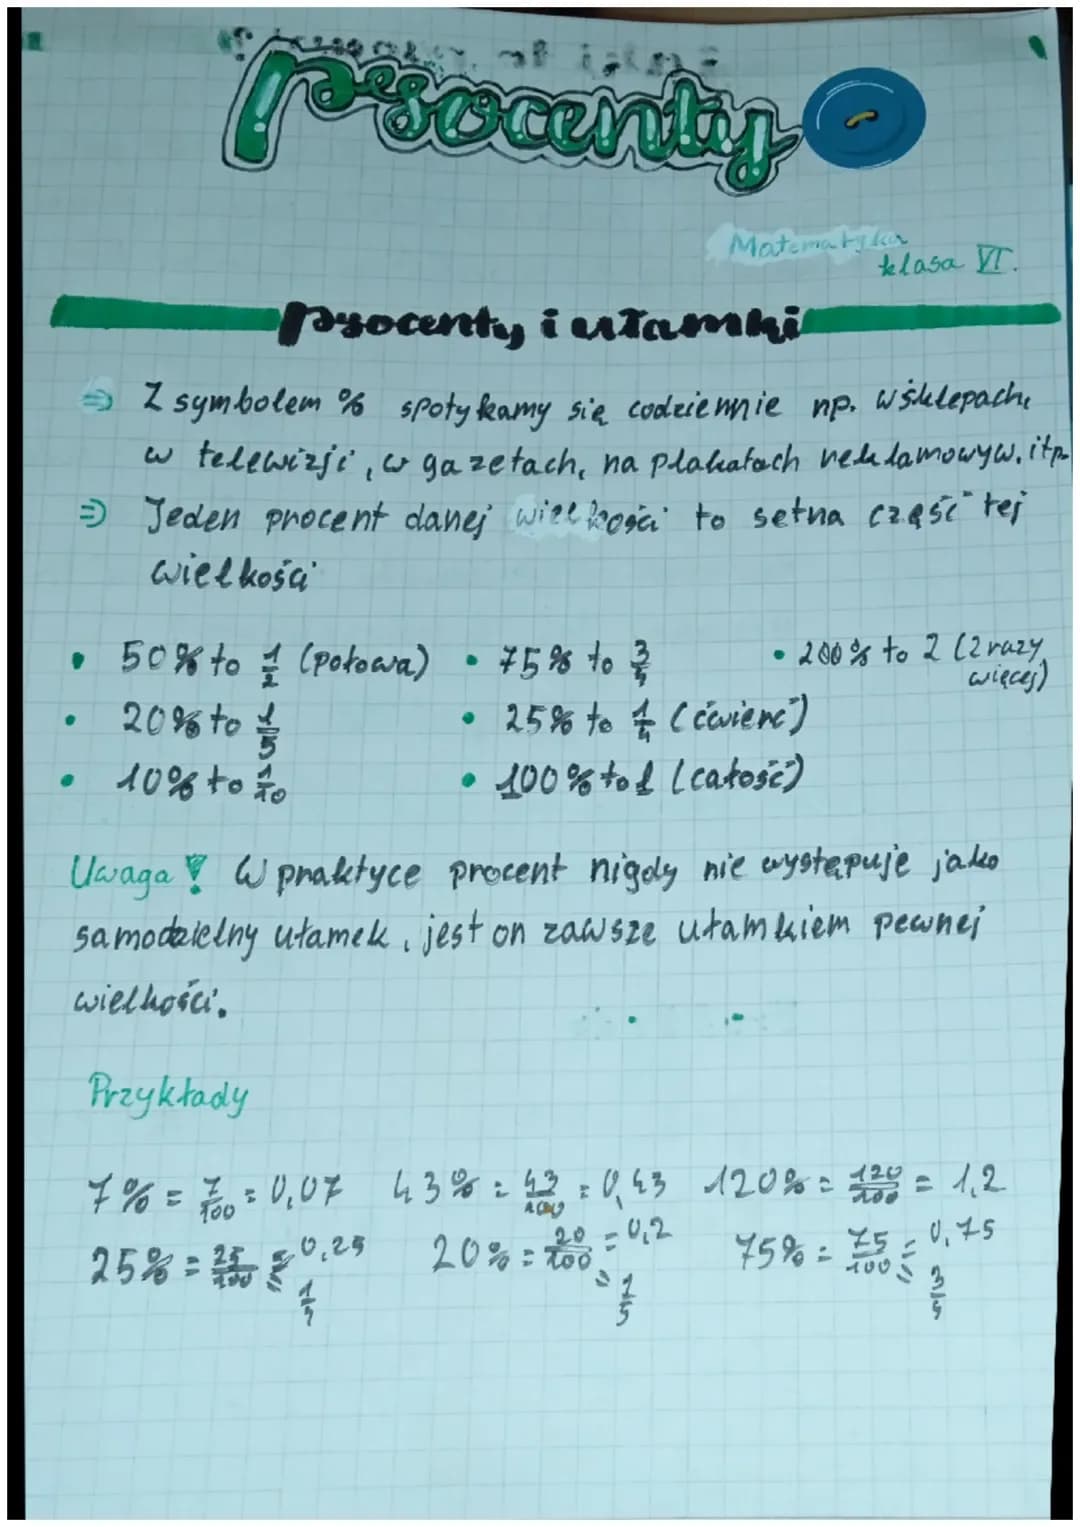 procenty
Matematyka
klasa VI.
procenty i ułamki
⇒ Z symbolem % spotykamy się codziennie np. w sklepach,
w telewizji, w gazetach, na plakatach reklamowyw, itp.
⇒ Jeden procent danej wielkości to setna część tej
wielkości
• 50% to 1/2 (połowa) • 75% to 3/4 • 200% to 2 (2 razy
więcej)
• 20% to 1/5 • 25% to 1/4 (ćwierć)
• 10% to 1/10 • 100% to 1 (całość)
Uwaga! W praktyce procent nigdy nie występuje jako
samodzielny ułamek, jest on zawsze ułamkiem pewnej
wielkości.
Przykłady
7% = 7/100 = 0,07 43% = 43/100 = 0,43 120% = 120/100 = 1,2
25% = 25/100 = 0,25 = 1/4 20% = 20/100 = 0,2 = 1/5 75% = 75/100 = 0,75 = 3/4